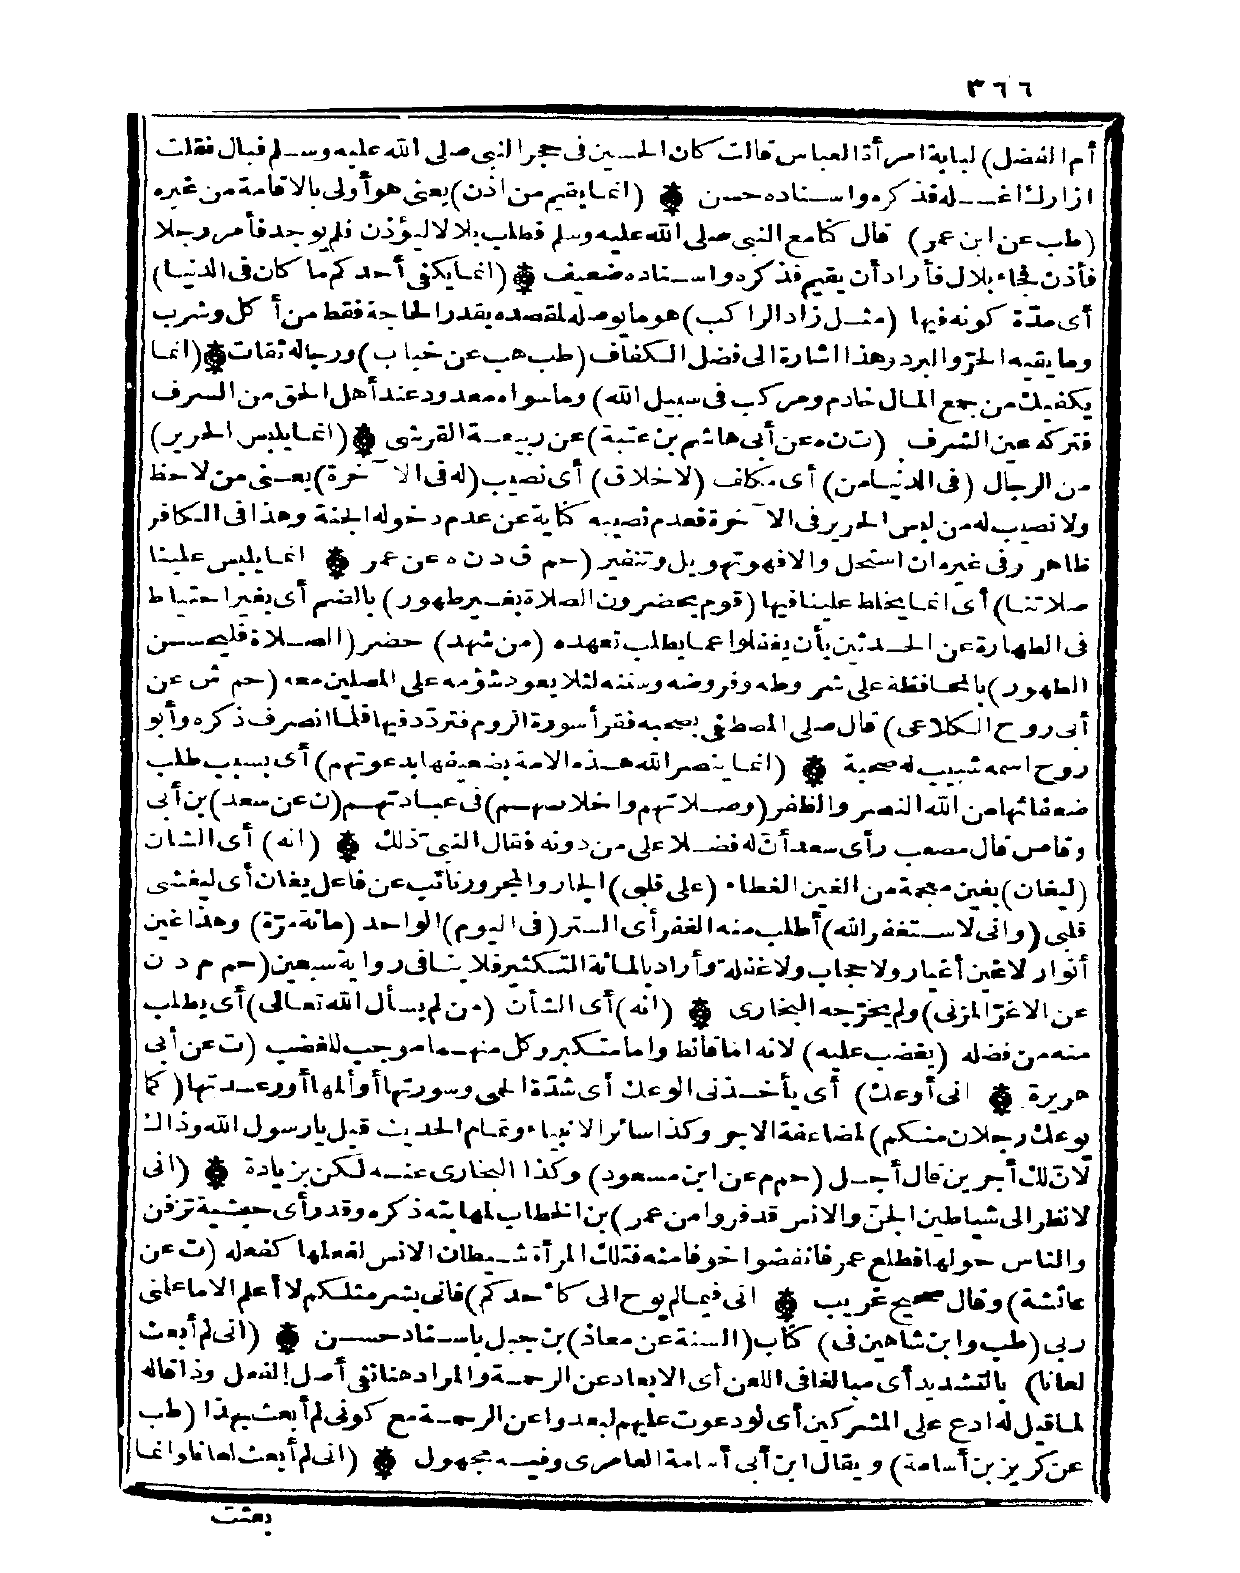 ٣٦٦
أم الفضل) لبابة امرأة العباس قالت كان الحسين فى حجر النبى صلى الله عليه وسلم فبال فقلت
ازارك اغسله فذكره واسناده حسن ۞ (انما يقيم من اذن) يعنى هو أولى بالاقامة من غيره
(طب عن ابن عمر) قال كنا مع النبى صلى الله عليه وسلم فطلب بلالا ليؤذن فلم يوجد فأمر رجلا
فأذن فجاء بلال فأراد أن يقيم فذكره واسناده ضعيف ۞ (انما يكفى أحدكم ما كان فى الدنيا)
أى مدّة كونه فيها (مثل زاد الراكب) هو ما يوصله لمقصده بقدر الحاجة فقط من أكل وشرب
وما يقيه الحرّ والبرد وهذا اشارة الى فضل الكفاف (طب هب عن خباب) ورجاله ثقات ۞ (انما
يكفيك من جمع المال خادم ومركب فى سبيل الله) وما سواه معدود عند أهل الحق من السرف
فتركه عين الشرف (ت ن ه عن أبى هاشم بن عتبة) عن ربيعة القرشى ۞ (انما يلبس الحرير)
من الرجال (فى الدنيا من) أى مكلف (لا خلاق) أى نصيب (له فى الآخرة) يعنى من لا حظ
ولا نصيب له من لبس الحرير فى الآخرة فعدم نصيبه كناية عن عدم دخوله الجنة وهذا فى الكافر
ظاهر وفى غيره ان استحل والا فهو تهويل وتنفير (حم ق د ن ه عن عمر ۞ انما يلبس علينا
صلاتنا) أى انما يخلط علينا فيها (قوم يحضرون الصلاة بغير طهور) بالضم أى بغير احتياط
فى الطهارة عن الحدثين بأن يغفلوا عما يطلب تعهده (من شهد) حضر (الصلاة فليحسن
الطهور) بالمحافظة على شروطه وفروضه وسننه لئلا يعود شؤمه على المصلين معه (حم ش عن
أبى روح الكلاعى) قال صلى المصطفى بصحبه فقرأ سورة الروم فتردّد فيها فلما انصرف ذكره وأبو
روح اسمه شبيب له صحبة ۞ (انما ينصر الله هذه الامة بضعيفها بدعوتهم) أى بسبب طلب
ضعفائها من الله النصر والظفر (وصلاتهم واخلاصهم) فى عبادتهم (ن عن سعد) بن أبى
وقاص قال مصعب رأى سعد أنّ له فضلا على من دونه فقال النبى ذلك ۞ (انه) أى الشان
(ليغان) بغين معجمة من الغين الغطاء (على قلبى) الجار والمجرور نائب عن فاعل يغان أى ليغشى
قلبى (وانى لاستغفر الله) أطلب منه الغفر أى الستر (فى اليوم) الواحد (مائة مرّة) وهذا غين
أنوار لا غين أغيار ولا حجاب ولا غفلة وأراد بالمائة التكثير فلا ينافى رواية سبعين (حم م د ن
عن الاغرّ المزنى) ولم يخرّجه البخارى ۞ (انه) أى الشأن (من لم يسأل الله تعالى) أى يطلب
منه من فضله (يغضب عليه) لانه اما قانط واما متكبر وكل منهما موجب للغضب (ت عن أبى
هريرة ۞ انى أوعك) أى يأخذنى الوعك أى شدّة الحمى وسورتها أو ألمها أو رعدتها (كما
يوعك رجلان منكم) لمضاعفة الاجر وكذا سائر الانبياء وتمام الحديث قيل يا رسول الله وذاك
لانّ لك أجرين قال أجل (حم م عن ابن مسعود) وكذا البخارى عنه لكن بزيادة ۞ (انى
لانظر الى شياطين الجنّ والانس قد فروا من عمر) بن الخطاب لمهابته ذكره وقد رأى حبشية تزفن
والناس حولها فطلع عمر فانفضوا خوفا منه فتلك المرأة شيطان الانس لفعلها كفعله (ت عن
عائشة) وقال صحيح غريب ۞ انى فيما لم يوح الى كأحدكم) فانى بشر مثلكم لا أعلم الا ما علمنى
ربى (طب وابن شاهين فى) كتاب (السنة عن معاذ) بن جبل باسناد حسن ۞ (انى لم أبعث
لعانا) بالتشديد أى مبالغا فى اللعن أى الابعاد عن الرحمة والمراد هنا نفى أصل الفعل وذا قاله
لما قيل له ادع على المشركين أى لو دعوت عليهم لبعدوا عن الرحمة مع كونى لم أبعث بهذا (طب
عن كريز بن أسامة) ويقال ابن أبى أسامة العامرى وفيه مجهول ۞ (انى لم أبعث لعانا وانما
بعثت